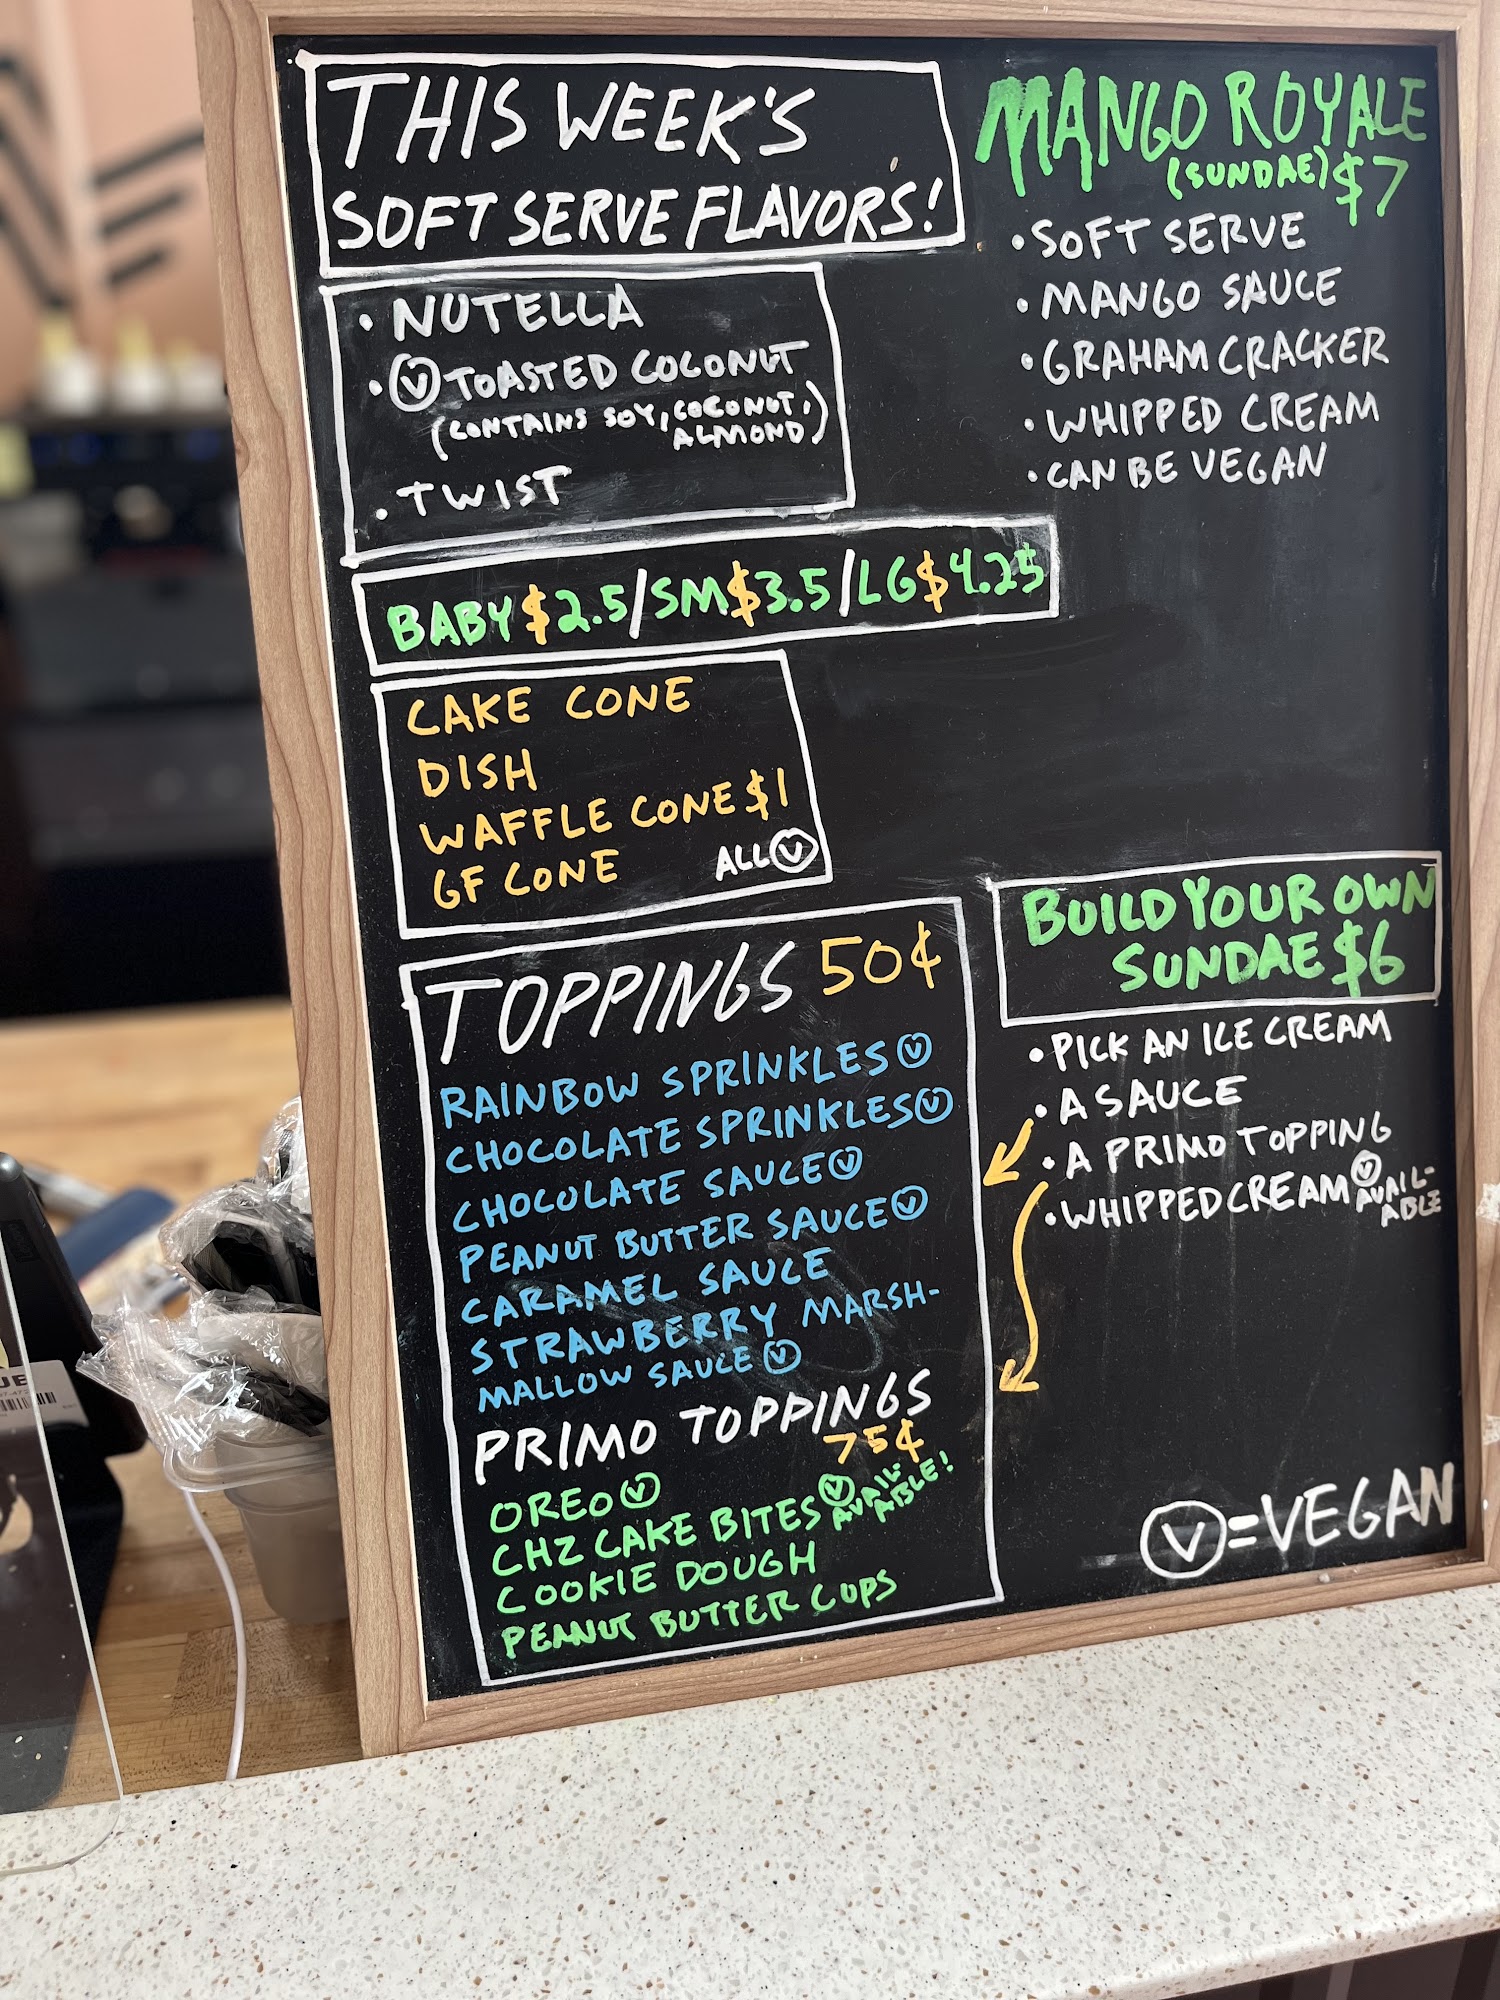 THIS WEEK'S
SOFT SERVE FLAVORS!
• NUTELLA
• Ⓥ TOASTED COCONUT
(CONTAINS SOY, COCONUT,
ALMOND)
• TWIST
BABY $2.5/SM $3.5/LG $4.25
CAKE CONE
DISH
WAFFLE CONE $1
GF CONE ALL Ⓥ
TOPPINGS 50¢
RAINBOW SPRINKLES Ⓥ
CHOCOLATE SPRINKLES Ⓥ
CHOCOLATE SAUCE Ⓥ
PEANUT BUTTER SAUCE Ⓥ
CARAMEL SAUCE
STRAWBERRY MARSH-
MALLOW SAUCE Ⓥ
PRIMO TOPPINGS
75¢
OREO Ⓥ
CHZ CAKE BITES Ⓥ AVAIL-
ABLE!
COOKIE DOUGH
PEANUT BUTTER CUPS
MANGO ROYALE
(SUNDAE) $7
• SOFT SERVE
• MANGO SAUCE
• GRAHAM CRACKER
• WHIPPED CREAM
• CAN BE VEGAN
BUILD YOUR OWN
SUNDAE $6
• PICK AN ICE CREAM
• A SAUCE
• A PRIMO TOPPING
• WHIPPED CREAM Ⓥ AVAIL-
ABLE
Ⓥ = VEGAN